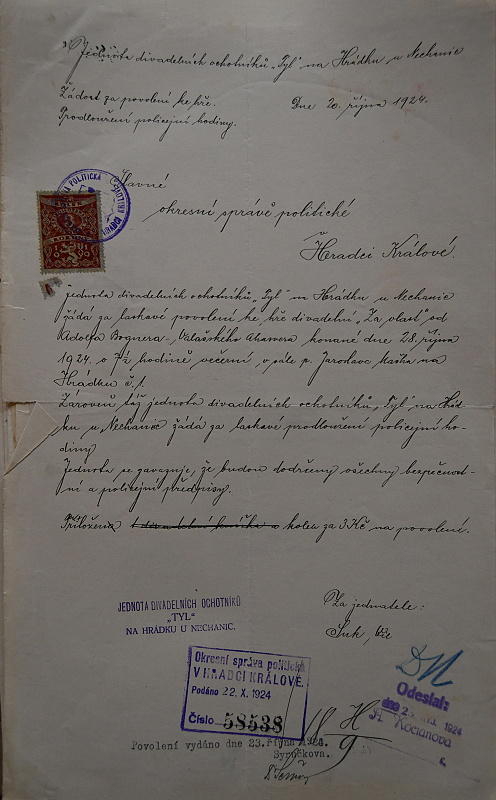 Jednota divadelních ochotníků „Tyl" na Hrádku u Nechanic
Žádost za povolení ke hře. Dne 20. října 1924.
Prodloužení policejní hodiny.
Slavné
POLITICKÁ
okresní správě politické
Hradci Králové.
jednota divadelních ochotníků „Tyl" na Hrádku u Nechanic
žádá za laskavé povolení ke hře divadelní „Za vlast" od
Adolfa Bognera - Valašského Ahasvera konané dne 28. října
1924 o 7½ hodině večerní, v sále p. Jaroslava Maška na
Hrádku č. 1.
Zároveň táž jednota divadelních ochotníků „Tyl" na Hrád-
ku u Nechanic žádá za laskavé prodloužení policejní ho-
diny
Jednota se zavazuje, že budou dodrženy všechny bezpečnost-
ní a policejní předpisy.
kolek za 3 Kč na povolení.
Za jednatele:
Suk
JEDNOTA DIVADELNÍCH OCHOTNÍKŮ
„TYL"
NA HRÁDKU U NECHANIC.
Okresní správa politická
V HRADCI KRÁLOVÉ.
Podáno 22. X. 1924
Číslo 58538
Odeslal:
dne 1924
A. Kocianova
Povolení vydáno dne 23. října 1924.